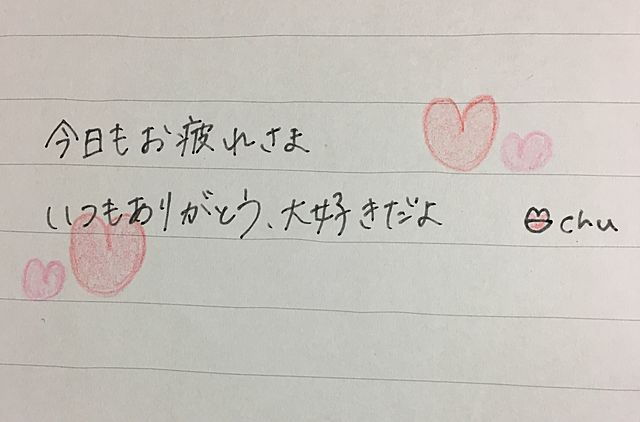 今日もお疲れさま
いつもありがとう、大好きだよ chu